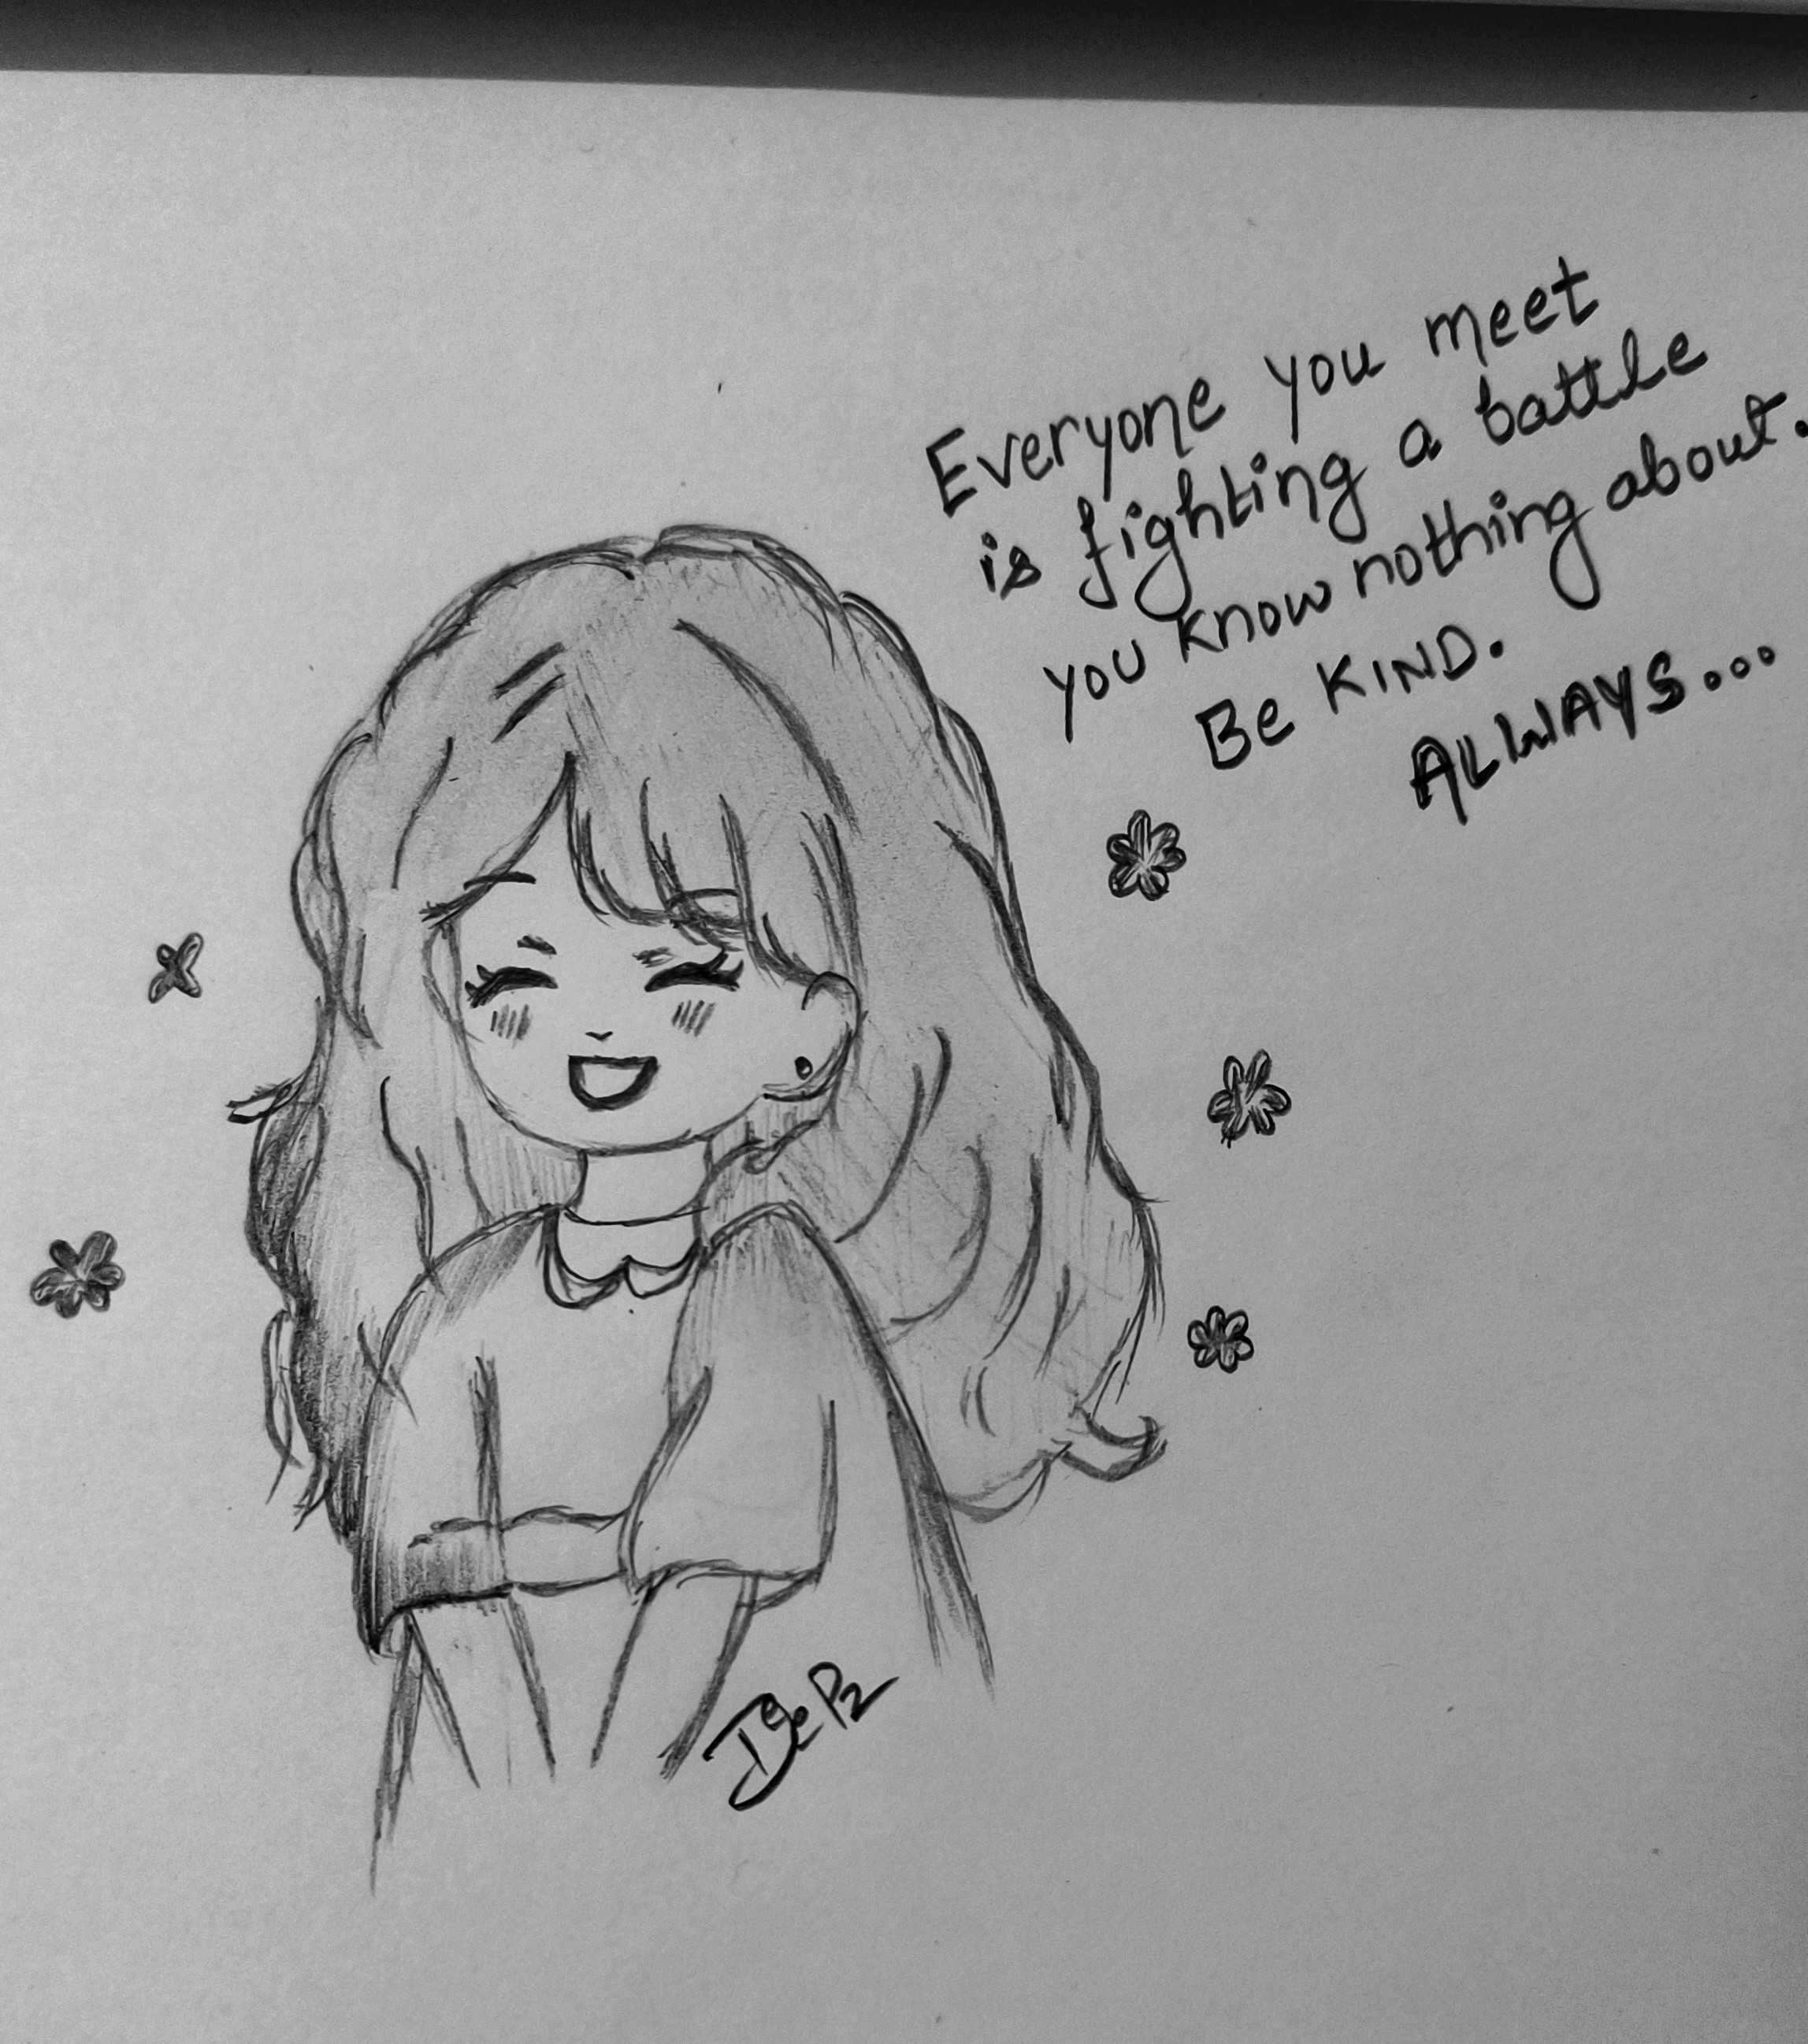 Everyone you meet
is fighting a battle
you know nothing about.
Be KIND.
ALWAYS...